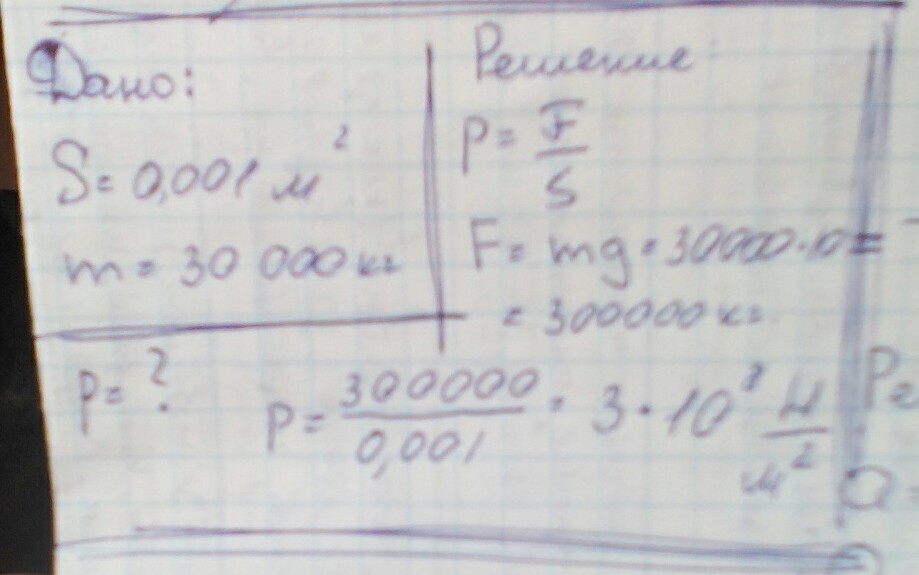 Дано:
S = 0,001 м²
m = 30 000 кг
p = ?
Решение:
p = F/S
F = mg = 30000·10 =
= 300000 кг
p = 300000/0,001 = 3·10⁸ Н/м²
P=
Q